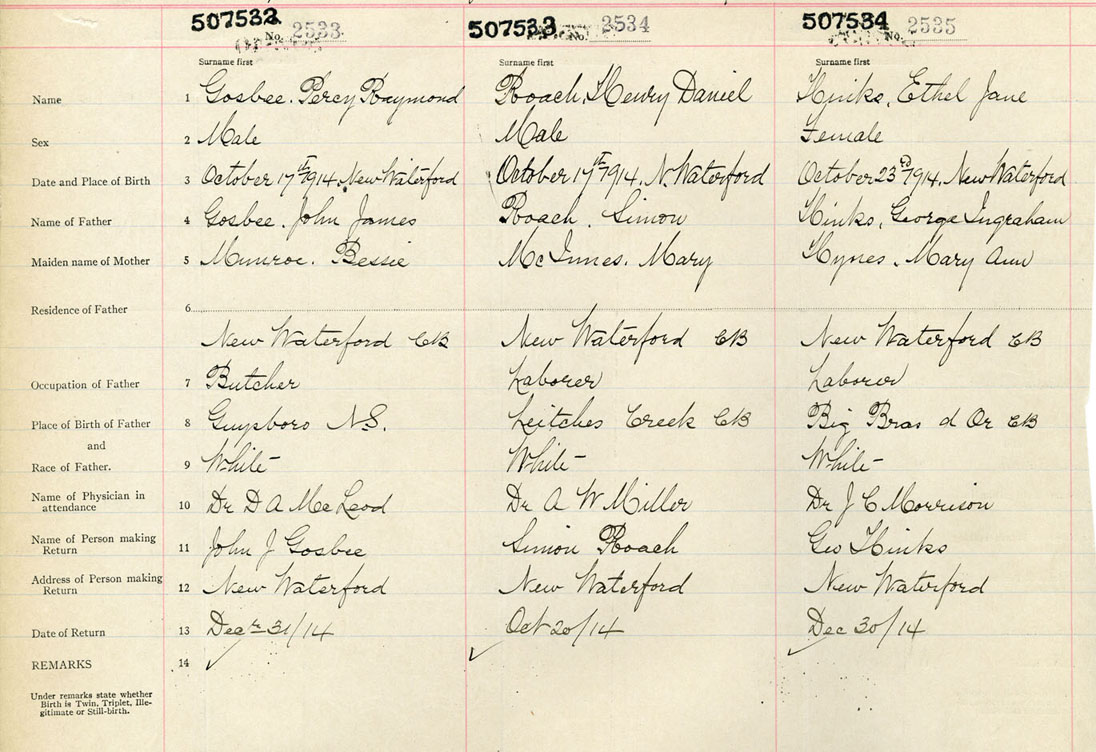 507532 No. 2533 507533 No. 2534 507534 No. 2535
Surname first Surname first Surname first
Name 1 Gosbee. Percy Raymond Roach. Henry Daniel Hinks, Ethel Jane
Sex 2 Male Male Female
Date and Place of Birth 3 October 17th 1914. New Waterford October 17th 1914. N. Waterford October 23rd 1914. New Waterford
Name of Father 4 Gosbee. John James Roach. Simon Hinks, George Ingraham
Maiden name of Mother 5 Munroe. Bessie McInnes. Mary Hynes. Mary Ann
Residence of Father 6
New Waterford CB New Waterford CB New Waterford CB
Occupation of Father 7 Butcher Laborer Laborer
Place of Birth of Father 8 Guysboro N.S. Leitches Creek CB Big Bras d Or CB
and
Race of Father. 9 White White White
Name of Physician in
attendance 10 Dr D A McLeod Dr A W Miller Dr J C Morrison
Name of Person making
Return 11 John J Gosbee Simon Roach Geo Hinks
Address of Person making
Return 12 New Waterford New Waterford New Waterford
Date of Return 13 Decr 31/14 Oct 20/14 Dec 30/14
REMARKS 14
Under remarks state whether
Birth is Twin, Triplet, Ille-
gitimate or Still-birth.